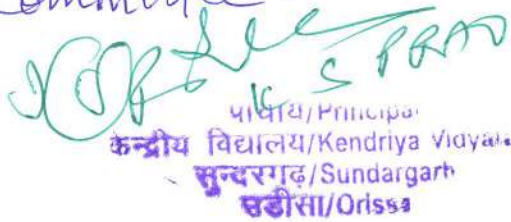 Committee
K S PRAD
प्राचार्य/Principal
केन्द्रीय विद्यालय/Kendriya Vidyala
सुन्दरगढ़/Sundargarh
उडीसा/Orissa